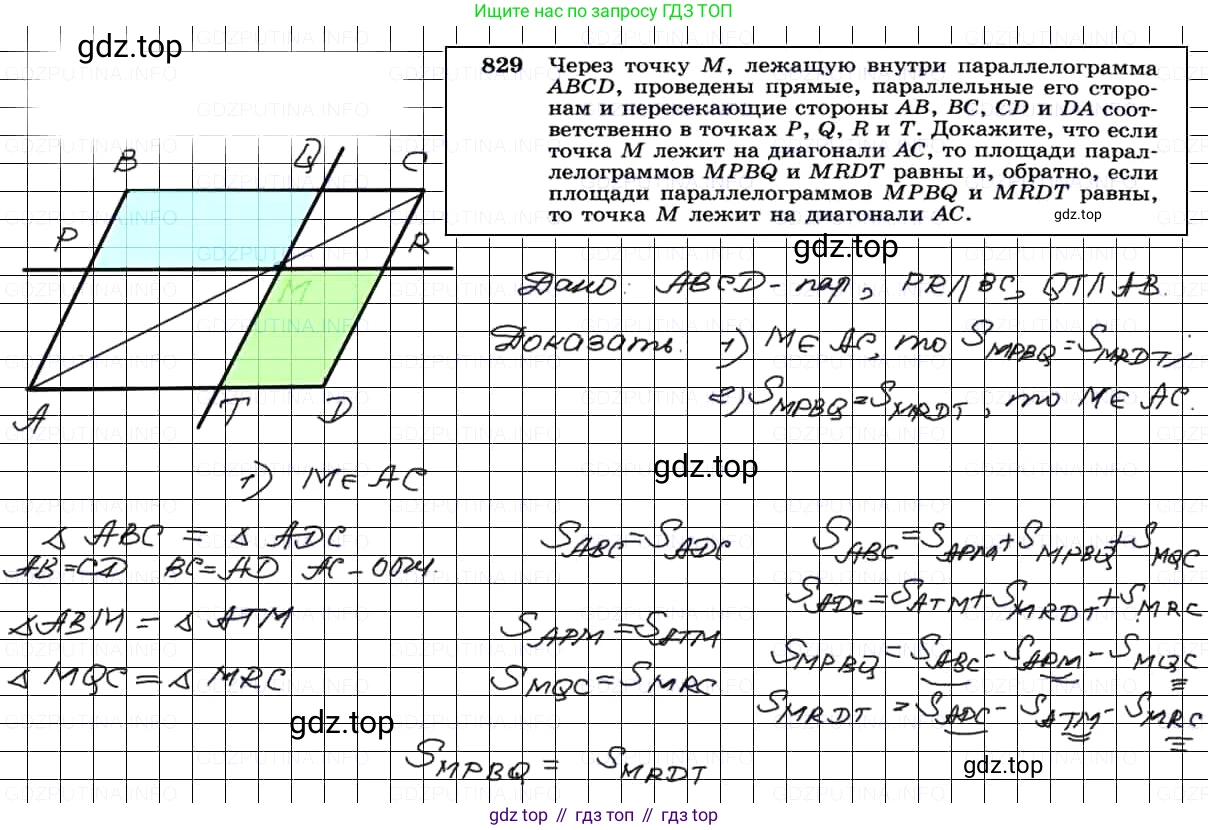 Ищите нас по запросу ГДЗ ТОП
gdz.top
829 Через точку M, лежащую внутри параллелограмма
ABCD, проведены прямые, параллельные его сторо-
нам и пересекающие стороны AB, BC, CD и DA соот-
ветственно в точках P, Q, R и T. Докажите, что если
точка M лежит на диагонали AC, то площади парал-
лелограммов MPBQ и MRDT равны и, обратно, если
площади параллелограммов MPBQ и MRDT равны,
то точка M лежит на диагонали AC.
gdz.top
gdz.top
B Q C
P R
M
A T D
Дано: ABCD - пар, PR || BC, QT || AB.
Доказать: 1) M ∈ AC, то S MPBQ = S MRDT;
2) S MPBQ = S MRDT, то M ∈ AC.
gdz.top
1) M ∈ AC
△ ABC = △ ADC
AB = CD BC = AD AC - общ.
△ ABM = △ ATM
△ MQC = △ MRC
S ABC = S ADC
S APM = S ATM
S MQC = S MRC
S ABC = S APM + S MPBQ + S MQC
S ADC = S ATM + S MRDT + S MRC
S MPBQ = S ABC - S APM - S MQC
S MRDT = S ADC - S ATM - S MRC
gdz.top
S MPBQ = S MRDT
gdz.top
gdz top // гдз топ // gdz top